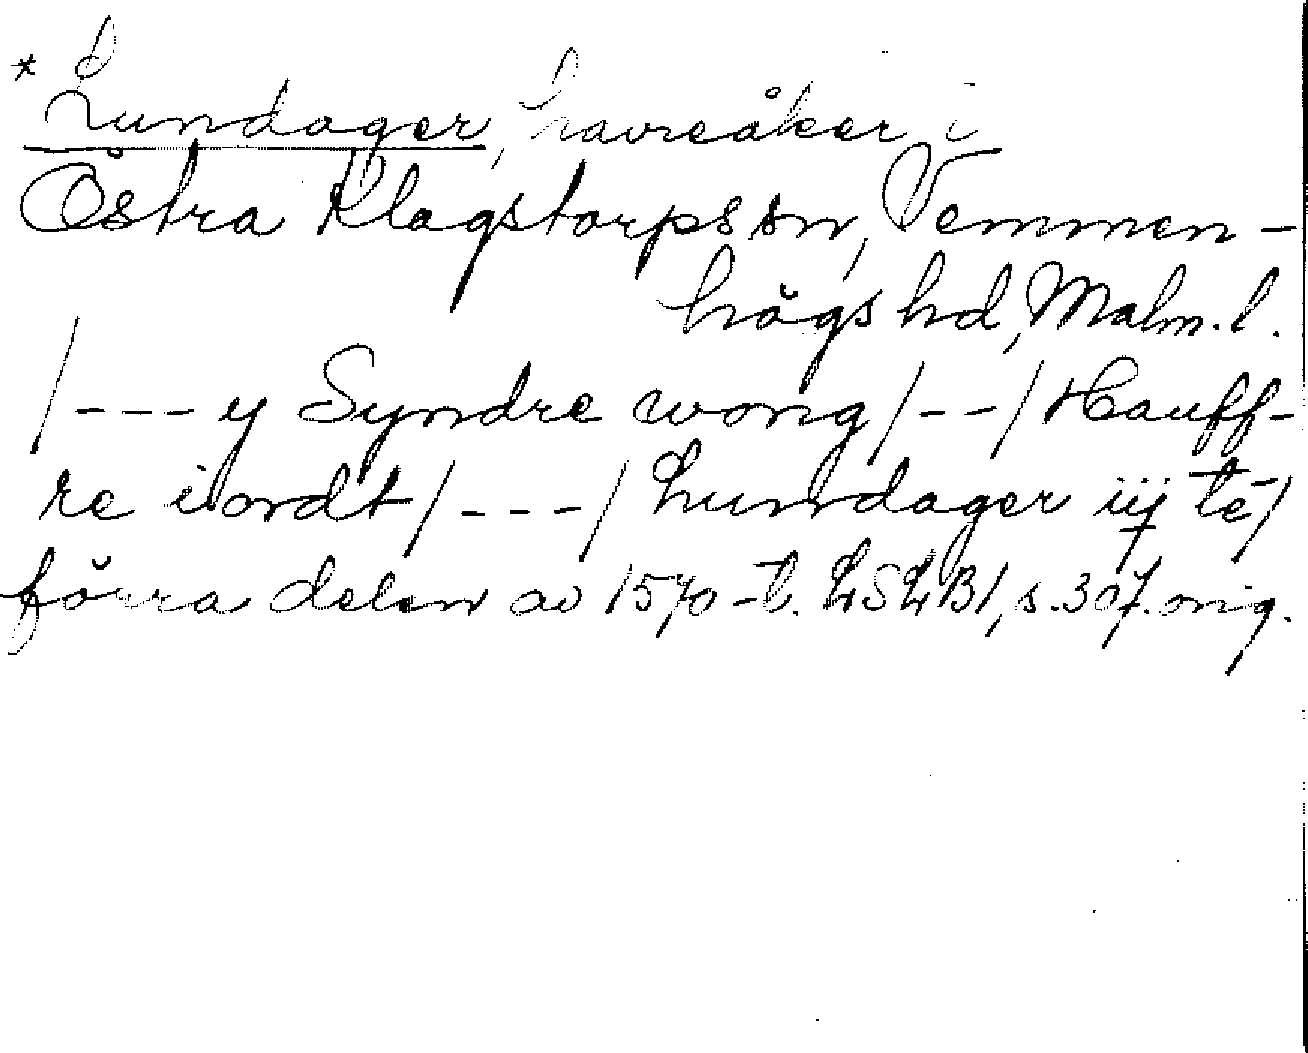 * Lundager, havreåker i
Östra Klagstorps sn, Vemmen-
högs hd, Malm. l.
/--- y Syndre wong /--/ Hauff-
re iordt /---/ Lundager iij te/
förra delen av 1570-t. LSLB1, s. 307. orig.